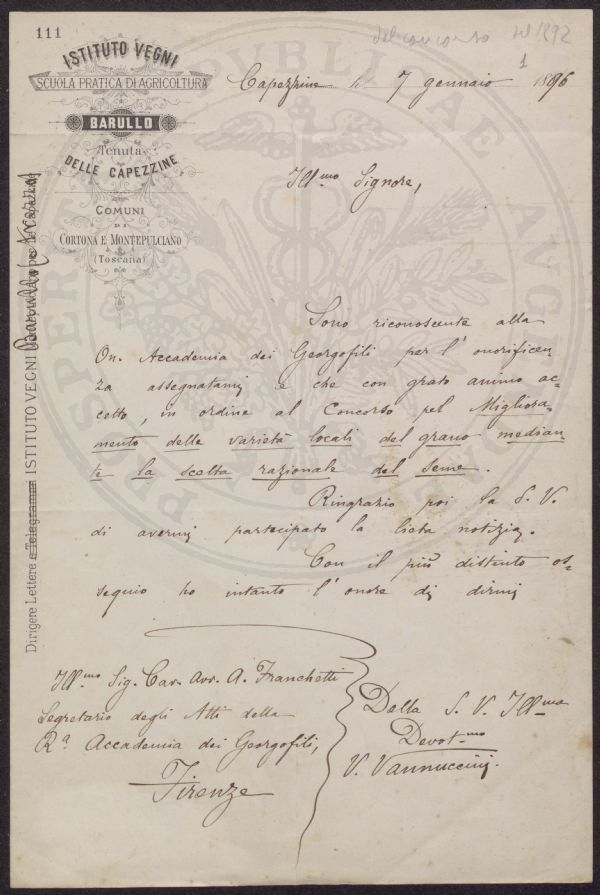 111
del concorso del 1892
1
ISTITUTO VEGNI
SCUOLA PRATICA DI AGRICOLTURA
BARULLO
Tenuta
DELLE CAPEZZINE
COMUNI
DI
CORTONA E MONTEPULCIANO
(Toscana)
Dirigere Lettere e Telegrammi ISTITUTO VEGNI Barullo
Capezzine li 7 gennaio 1896
Ill.mo Signore,
Sono riconoscente alla
On. Accademia dei Georgofili per l'onorificen-
za assegnatami e che con grato animo ac-
cetto, in ordine al Concorso pel Migliora-
mento delle varietà locali del grano median-
te la scelta razionale del seme.
Ringrazio poi la S. V.
di avermi partecipato la lieta notizia.
Con il più distinto os-
sequio ho intanto l'onore di dirmi
Della S. V. Ill.ma
Devot.mo
V. Vannuccini.
Ill.mo Sig. Cav. Avv. A. Franchetti
Segretario degli Atti della
R.a Accademia dei Georgofili,
Firenze